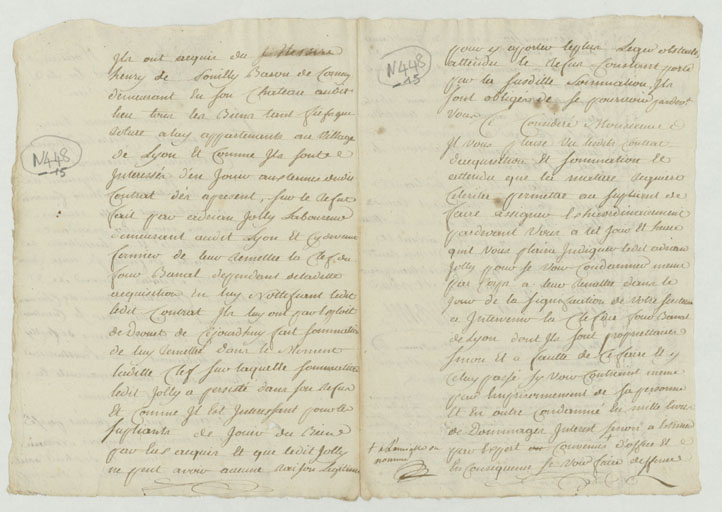 Ils ont acquis du Messire
henry de Souilly Baron de
demeurant En son Chateau audit
lieu tous les Biens tant
a luy appartenants au Village
de Lyon Et Comme Ils sont
Interessés d'en Jouir aux termes dudit
Contrat des apresent, sur le Refus
fait par adrian Jolly Laboureur
demeurant audit Lyon Et cydevant
fermier de leur Remettre la Clef du
four Banal dependant de ladite
acquisition En luy Notifiant ledit
ledit Contrat Ils luy ont par Exploit
de Drouet de Cejourdhuy fait sommation
de luy Remettre dans le Moment
ladite Clef sur laquelle sommation
ledit Jolly a persisté dans son Refus
Et Comme Il Est Interessant pour les
supliants de Jouir du Bien
par Eux acquis Et que ledit Jolly
ne peut avoir aucune raison Legitime
N448
15
pour y aporter
attendu le Refus Constant porté
par la susditte Sommation Ils
sont obligés de se pourvoir pardevant
Vous
Consideré Monsieur
Il Vous plaise Vu Contrat
d'acquisition Et sommation Et
attendu que la matiere Requiert
Celerité permettre au supliant de
faire assigner Extraordinairement
pardevant Vous a tel Jour et heure
quil Vous plaira Indiquer ledit adrian
Jolly pour se Voir Condamner meme
par Corps a leur Remettre dans le
Jour de la signification de Votre Sentence
a Intervenir la Clef du four Banal
de Lyon dont Ils sont proprietaires
sinon Et a faute de Ce faire Et
Celuy passé sy Voir Contraint meme
par Emprisonnement de sa personne
Et En outre Condamné En mille livres
de Dommages Interest sinon a
par Expert Convenus d'office Et
En Consequence se Voir faire deffense
N448
15